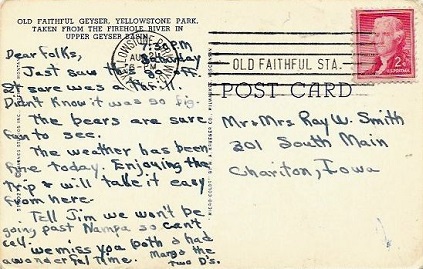 OLD FAITHFUL GEYSER, YELLOWSTONE PARK,
TAKEN FROM THE FIREHOLE RIVER IN
UPPER GEYSER BASIN.
7:30 P.M
Saturday
Dear folks,
Just saw the
It sure was a thrill.
Didn't know it was so big.
The bears are sure
fun to see.
The weather has been
fine today. Enjoying the
trip & will take it easy
from here.
Tell Jim we won't be
going past Nampa so can't
call. we miss you both & had
a wonderful time. Margo the
Two D's.
OLD FAITHFUL STA.
2¢
POST CARD
Mr & Mrs Ray W. Smith
301 South Main
Chariton, Iowa